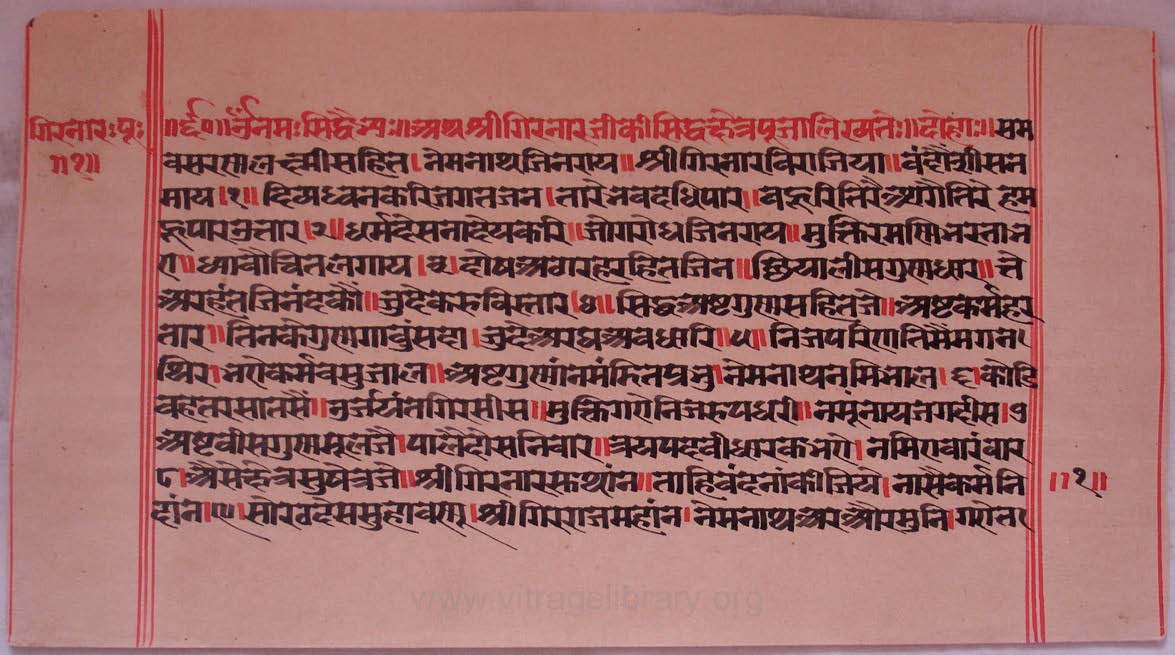 गिरनारःपूः
॥१॥
॥ॐनमःसिद्धेभ्यः॥अथश्रीगिरनारजीकीसिद्धक्षेत्रपूजालिख्यतेः॥दोहाः॥सम
वसरणलक्ष्मीसहित।नेमनाथजिनराय॥श्रीगिरनारविराजिया॥वंदौंसीसन
माय।१॥दिव्यध्वनकरिजगतजन।तारेभवदधिपार॥बहुरितिरैअगेतिरे हम
हूपारउतार।२॥धर्मदेसनादेयकरि॥जोगरोधजिनराय॥मुक्तिरमणि
॥ध्यावौचितलगाय।३॥दोषअठारहरहितजिन॥छियालीसगुणधार॥ते
अरहंतजिनंदकौं॥जुदैकरुविस्तार।४॥सिद्धअष्टगुणसहितजे॥अष्टकर्महर
तार॥तिनकेगुणगावुंसदा।जुदेअरघअवधारि॥५॥निजपरिणतिमैंमगन
थिर।भयेकर्मवसुजाल॥अष्टगुणांनमंडितप्रभु।नेमनाथनमिभाल।६।कोडि
बहतरसातसैं॥उर्जयंतगिरसीस॥मुक्तिगयेनिजरुपधरी॥नमूंनायजगदीस।७
अष्टवीसगुणमूलजै।पालैदोसनिवार॥त्रयपदवीधारकभये।नमिवारंवार
८।अैसेक्षेत्रसुषेत्रजै॥श्रीगिरनार॥ताहिवंदनांकीजिये।नासैकर्मनि
दांन।९।सोरठदेससुहावणा।श्रीगिरराजमहांन।नेमनाथअरऔरमुनि।गये
॥१॥
www.vitragelibrary.org